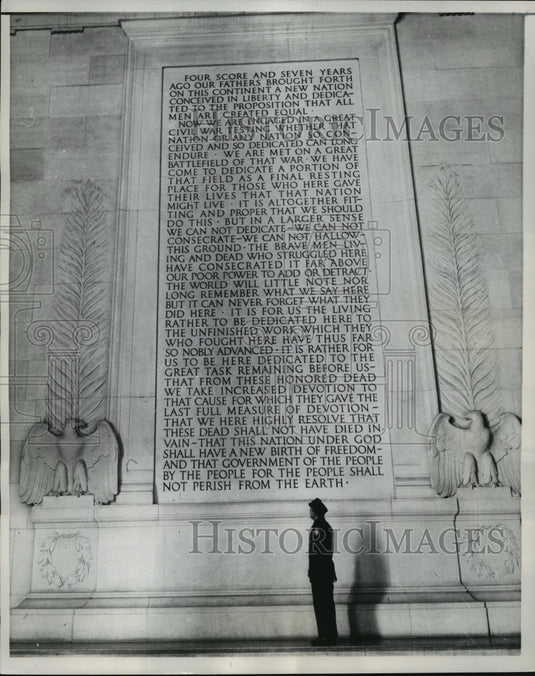 FOUR SCORE AND SEVEN YEARS
AGO OUR FATHERS BROUGHT FORTH
ON THIS CONTINENT A NEW NATION
CONCEIVED IN LIBERTY AND DEDICA-
TED TO THE PROPOSITION THAT ALL
MEN ARE CREATED EQUAL ·
NOW WE ARE ENGAGED IN A GREAT
CIVIL WAR TESTING WHETHER THAT
NATION OR ANY NATION SO CON-
CEIVED AND SO DEDICATED CAN LONG
ENDURE · WE ARE MET ON A GREAT
BATTLEFIELD OF THAT WAR · WE HAVE
COME TO DEDICATE A PORTION OF
THAT FIELD AS A FINAL RESTING
PLACE FOR THOSE WHO HERE GAVE
THEIR LIVES THAT THAT NATION
MIGHT LIVE · IT IS ALTOGETHER FIT-
TING AND PROPER THAT WE SHOULD
DO THIS · BUT IN A LARGER SENSE
WE CAN NOT DEDICATE–WE CAN NOT
CONSECRATE–WE CAN NOT HALLOW–
THIS GROUND · THE BRAVE MEN LIV-
ING AND DEAD WHO STRUGGLED HERE
HAVE CONSECRATED IT FAR ABOVE
OUR POOR POWER TO ADD OR DETRACT ·
THE WORLD WILL LITTLE NOTE NOR
LONG REMEMBER WHAT WE SAY HERE
BUT IT CAN NEVER FORGET WHAT THEY
DID HERE · IT IS FOR US THE LIVING
RATHER TO BE DEDICATED HERE TO
THE UNFINISHED WORK WHICH THEY
WHO FOUGHT HERE HAVE THUS FAR
SO NOBLY ADVANCED · IT IS RATHER FOR
US TO BE HERE DEDICATED TO THE
GREAT TASK REMAINING BEFORE US–
THAT FROM THESE HONORED DEAD
WE TAKE INCREASED DEVOTION TO
THAT CAUSE FOR WHICH THEY GAVE THE
LAST FULL MEASURE OF DEVOTION–
THAT WE HERE HIGHLY RESOLVE THAT
THESE DEAD SHALL NOT HAVE DIED IN
VAIN–THAT THIS NATION UNDER GOD
SHALL HAVE A NEW BIRTH OF FREEDOM–
AND THAT GOVERNMENT OF THE PEOPLE
BY THE PEOPLE FOR THE PEOPLE SHALL
NOT PERISH FROM THE EARTH ·
HISTORIC IMAGES
HISTORIC IMAGES